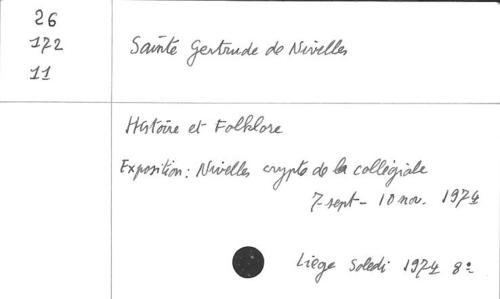 26
172 Sainte Gertrude de Nivelles
11
Histoire et Folklore
Exposition : Nivelles crypte de la collégiale
7 sept - 10 nov. 1974
Liege Soledi 1974 8º